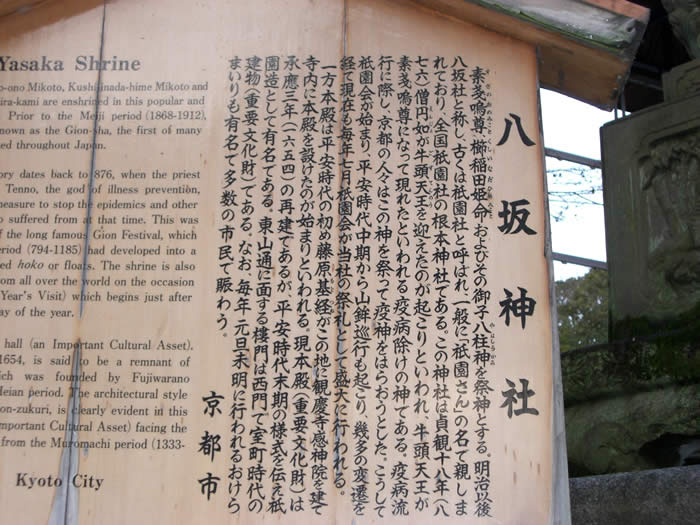 八坂神社
素戔嗚尊、櫛稲田姫命およびその御子八柱神を祭神とする。明治以後
八坂神社と称し、古くは祇園社と呼ばれ、一般に「祇園さん」の名で親しま
れており、全国祇園社の根本神社である。この神社は貞観十八年(八
七六)僧円如が牛頭天王を迎えたのが起こりといわれ、牛頭天王が
素戔嗚尊になって現れたといわれる疫病除けの神である。疫病流
行に際し、京都の人々はこの神を祭って疫神をはらおうとした。こうして
祇園会が始まり、平安時代中期から山鉾巡行も起こり、幾多の変遷を
経て現在も毎年七月、祇園会が当社の祭礼として盛大に行われる。
一方本殿は平安時代の初め藤原基経がこの地に観慶寺感神院を建て
寺内に本殿を設けたのが始まりといわれる。現本殿(重要文化財)は
承應三年(一六五四)の再建であるが、平安時代末期の様式を伝え祇
園造として有名である。東山通に面する樓門は西門で室町時代の
建物(重要文化財)である。なお、毎年元旦未明に行われるおけら
まいりも有名で多数の市民で賑わう。
京都市
Yasaka Shrine
o-ono Mikoto, Kushiinada-hime Mikoto and
ira-kami are enshrined in this popular and
Prior to the Meiji period (1868-1912),
nown as the Gion-sha, the first of many
ed throughout Japan.
ory dates back to 876, when the priest
Tenno, the god of illness prevention,
measure to stop the epidemics and other
o suffered from at that time. This was
of the long famous Gion Festival, which
eriod (794-1185) had developed into a
ed hoko or floats. The shrine is also
om all over the world on the occasion
Year's Visit) which begins just after
ay of the year.
hall (an Important Cultural Asset).
1654, is said to be a remnant of
ich was founded by Fujiwarano
Heian period. The architectural style
on-zukuri, is clearly evident in this
mportant Cultural Asset) facing the
from the Muromachi period (1333-
Kyoto City